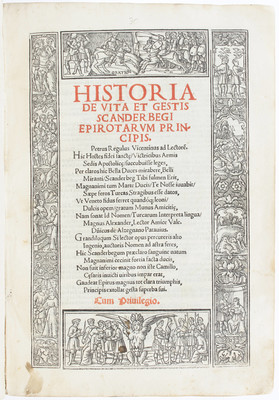 HISTORIA
DE VITA ET GESTIS
SCANDERBEGI
EPIROTARVM PRIN-
CIPIS.
Petrus Regulus Vicentinus ad Lectorē.
Hic Hostes fidei sanctę/Victricibus Armis
Sedis Apostolicę succubuisse leges,
Per claruit hic Bella Duces mirabere, Belli
Miranti Scanderbeg Tibi fulmen Erit,
Magnanimi tum Martę Ducis/Te Nosse iuuabit/
Sæpe ferox Turcas Stragibus esse datos,
Vt Veneto fidus ferret quandoq; leoni/
Dulcis opem/gratum Munus Amicitię,
Nam sonat Id Nomen/Turcarum Interprete lingua/
Magnus Alexander, Lector Amice Vale.
Grandiloquum Si lector opus percurreris alto
Ingenio, auctoris Nomen ad astra feres,
Hic Scanderbegum præclaro sanguine natum
Magnanimi recinit fortia facta ducis,
Non fuit inferior magno non iste Camillo,
Cęsaris inuicti uiribus impar erat,
Gaudeat Epirus magnus tot clara triumphis,
Principis extollat gesta superba sui.
Cum Priuilegio.